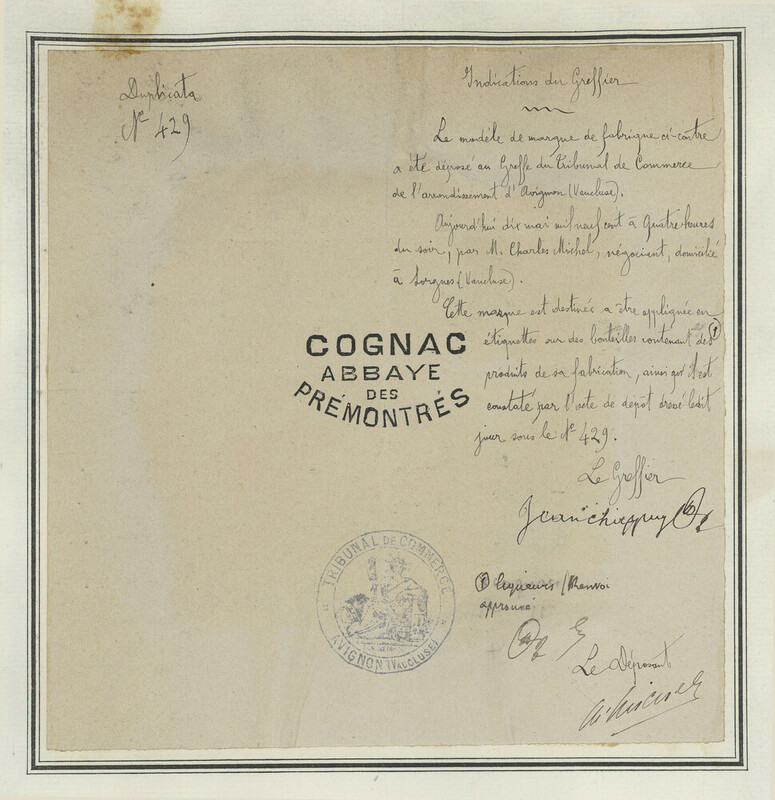 Duplicata
Nº 429
Indications du Greffier
Le modèle de marque de fabrique ci-contre
a été déposé au Greffe du Tribunal de Commerce
de l'arrondissement d'Avignon (Vaucluse).
Aujourd'hui dix mai mil neuf cent à quatre heures
du soir, par M. Charles Michel, négociant, domicilié
à Sorgues (Vaucluse).
Cette marque est destinée a être appliquée en
étiquettes sur des bouteilles contenant des (1)
produits de sa fabrication, ainsi qu'il est
constaté par l'acte de dépôt dressé ledit
jour sous le Nº 429.
COGNAC
ABBAYE
DES
PRÉMONTRÉS
Le Greffier
(1) liqueurs / Renvoi
approuvé
Le Déposant
TRIBUNAL DE COMMERCE
AVIGNON (VAUCLUSE)